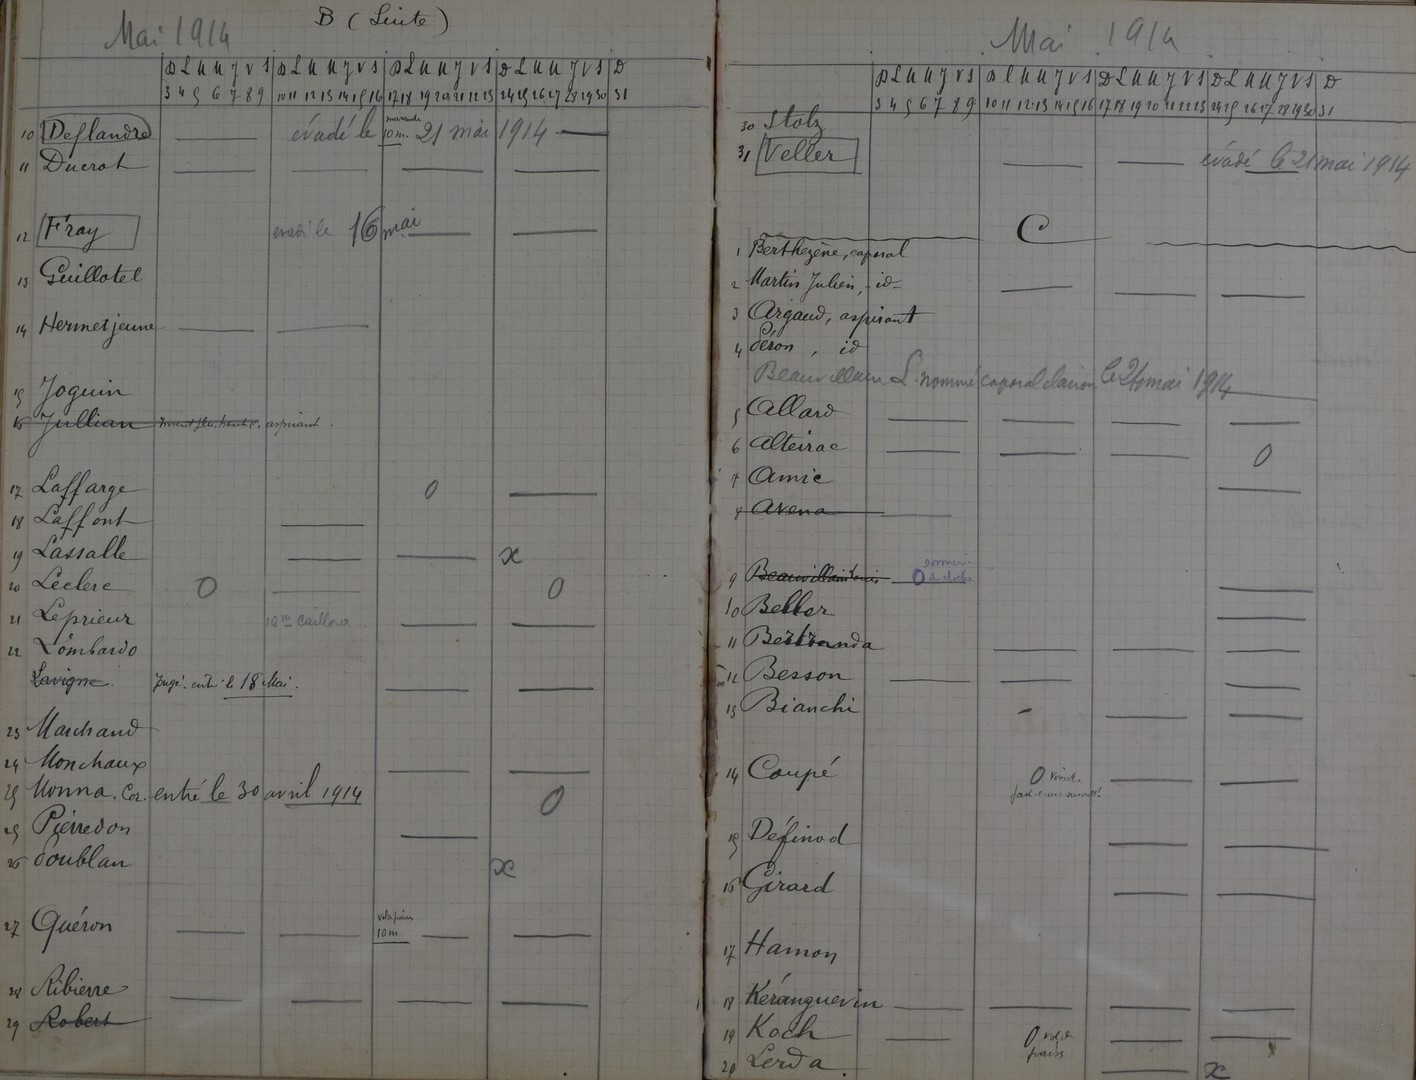 B (Suite)
Mai 1914
D L M M J V S D L M M J V S D L M M J V S D L M M J V S D
3 4 5 6 7 8 9 10 11 12 13 14 15 16 17 18 19 20 21 22 23 24 25 26 27 28 29 30 31
10 Deflandre évadé le 10 m. 21 mai 1914
11 Ducrot
12 Fray évadé le 16 mai
13 Guillotel
14 Hermet jeune
15 Joguin
16 Jullian aspirant.
17 Laffarge 0
18 Laffont
19 Lassalle x
20 Leclerc 0 0
21 Leprieur
22 Lombardo
Lavigne. Jugé. entré le 18 Mai.
23 Marchand
24 Monchaux
25 Monna. Cor. entré le 30 avril 1914 0
25 Pierredon
26 Soublan x
27 Quéron 10 m
28 Ribierre
29 Robert
Mai 1914
D L M M J V S D L M M J V S D L M M J V S D L M M J V S D
3 4 5 6 7 8 9 10 11 12 13 14 15 16 17 18 19 20 21 22 23 24 25 26 27 28 29 30 31
30 Stolz
31 Veller évadé le 21 mai 1914
C
1 Berthezène, caporal
2 Martin Julien, -id-
3 Argaud, aspirant
4 Séron, id
Beauvillain L. nommé caporal clairon le 24 mai 1914
5 Allard
6 Alteirac 0
7 Amic
8 Avena
9 Beauvillain Louis 0
10 Bebber
11 Bertranda
12 Besson
13 Bianchi
14 Coupé 0
15 Définod
16 Girard
17 Hamon
18 Kéranguevin
19 Koch 0 vol de
20 Lerda. x